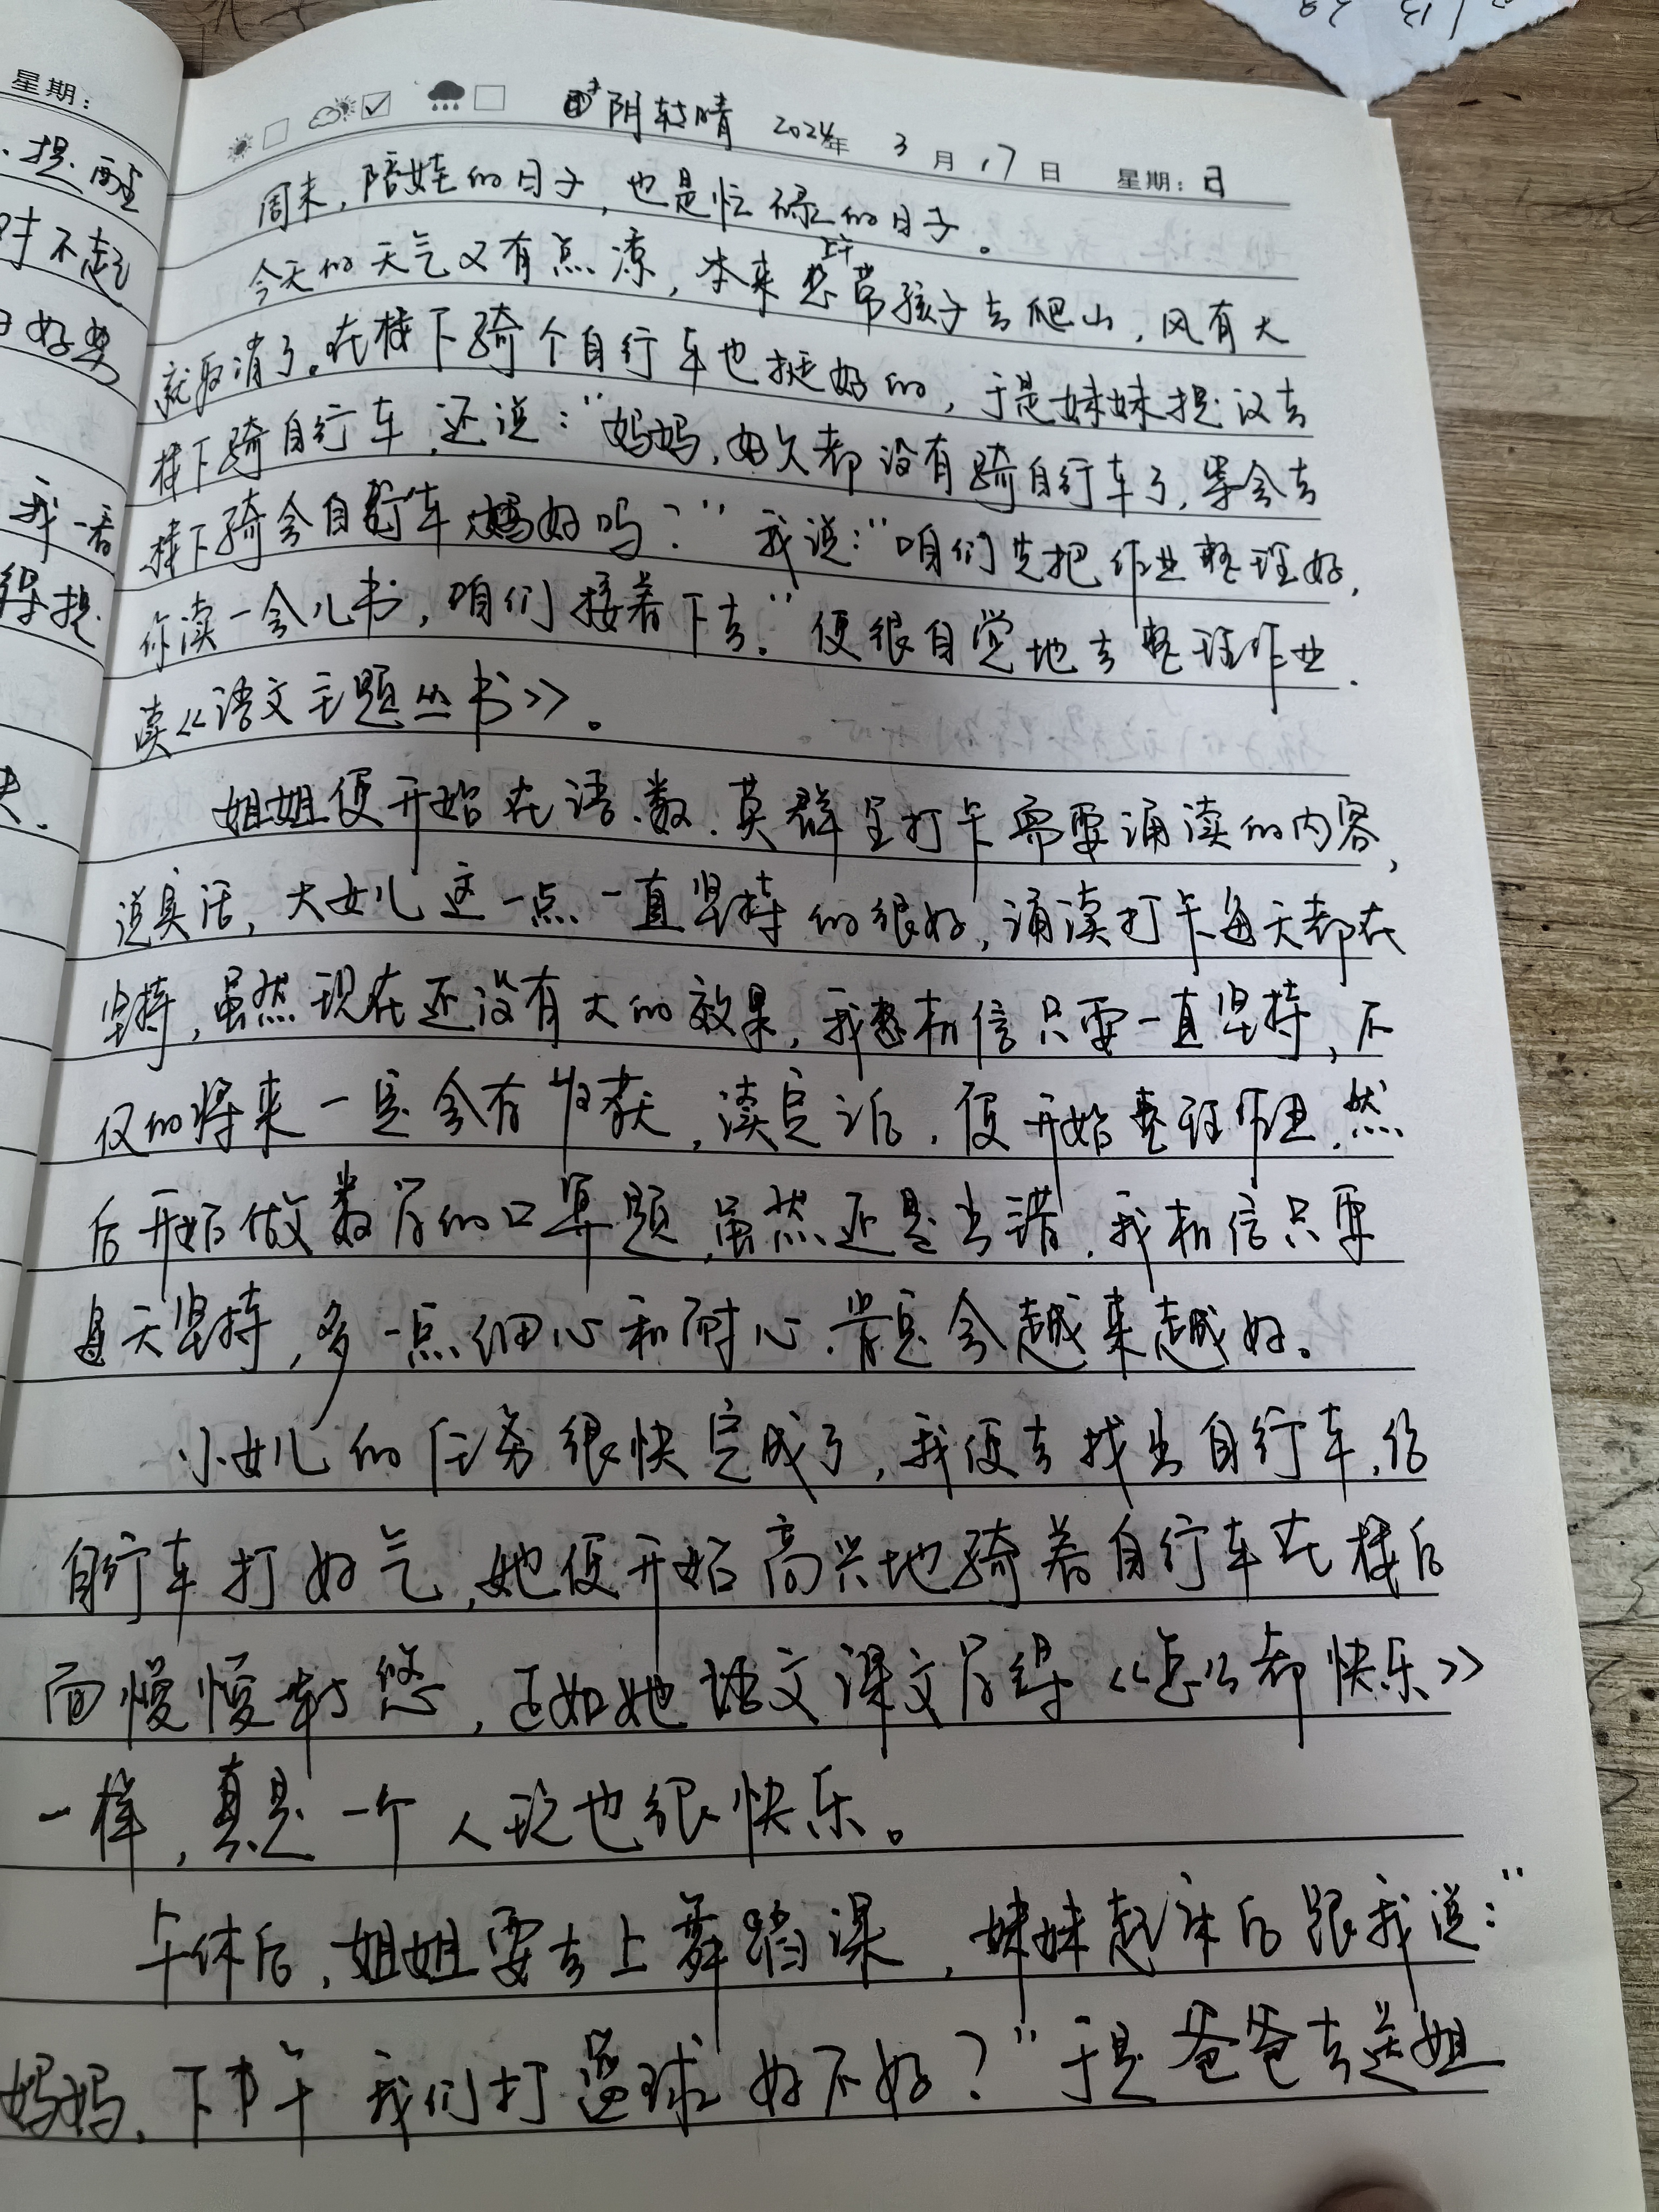 星期：
提醒
时不起
日好要
我一看
得提
阴转晴 2024年 3月17日 星期：日
周末，陪娃的日子，也是忙碌的日子。
今天的天气又有点凉，本来想上午带孩子去爬山，风有大
就取消了。在楼下骑个自行车也挺好的，于是妹妹提议去
楼下骑自行车，还说：“妈妈，好久都没有骑自行车了，等会去
楼下骑会自行车好吗？”我说：“咱们先把作业整理好，
你读一会儿书，咱们接着下去。”便很自觉地去整理作业.
读《语文主题丛书》。
姐姐便开始在语.数.英群里打卡需要诵读的内容，
说实话，大女儿这一点一直坚持的很好，诵读打卡每天都在
坚持，虽然现在还没有大的效果，我相信只要一直坚持，不
仅的将来一定会有收获，读完后，便开始整理作业，然
后开始做数学的口算题，虽然还是出错，我相信只要
每天坚持，多一点细心和耐心.肯定会越来越好。
小女儿的任务很快完成了，我便去找出自行车，给
自行车打好气，她便开始高兴地骑着自行车在楼后
面慢慢转悠，正如她语文课文学得《怎么都快乐》
一样，真是一个人玩也很快乐。
午休后，姐姐要去上舞蹈课，妹妹起床后跟我说：“
妈妈，下午我们打篮球好不好？”于是爸爸去送姐